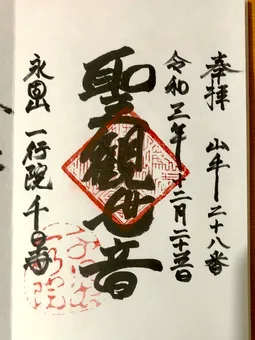 奉拝 山手二十八番
令和三年十二月二十日
聖観世音
永固山 一行院 千日寺